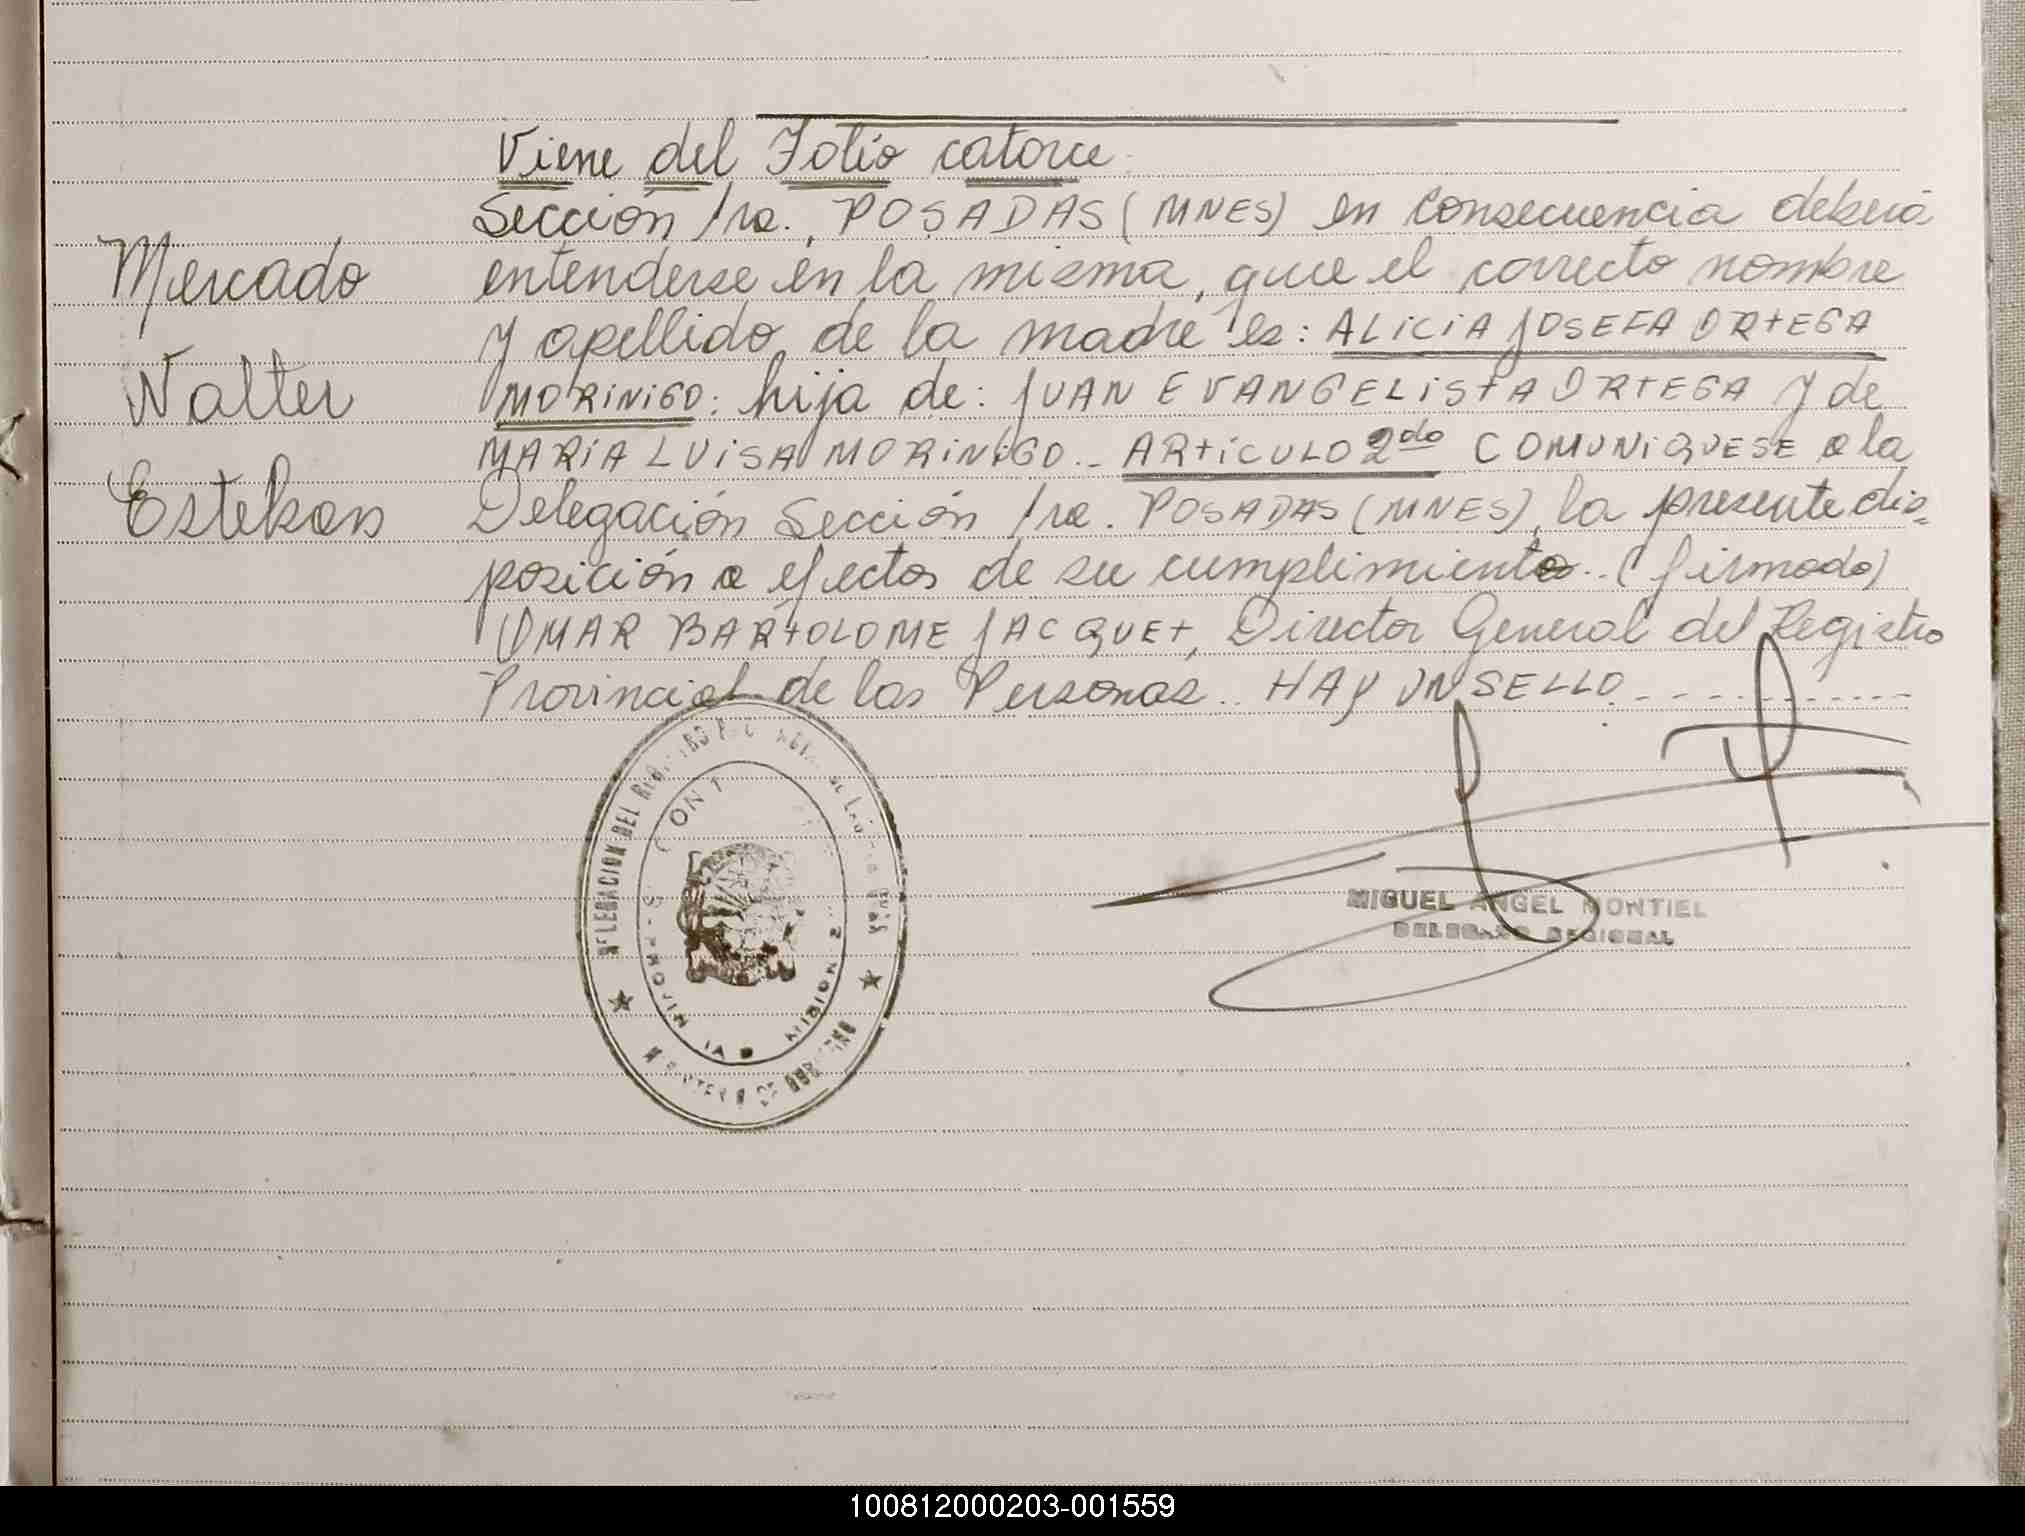 Viene del Folio catorce.
Sección 1ra., POSADAS (MNES) en Consecuencia deberá
Mercado
entenderse en la misma, que el correcto nombre
y apellido de la madre es: ALICIA JOSEFA ORTEGA
Walter
MORINIGO: hija de: JUAN EVANGELISTA ORTEGA y de
MARIA LUISA MORINIGO.- ARTICULO 2do COMUNIQUESE a la
Esteban
Delegación Sección 1ra. POSADAS (MNES), la presente dis-
posición a efectos de su cumplimiento.. (firmado)
OMAR BARTOLOME JACQUET, Director General del Registro
Provincial de las Personas.. HAY UN SELLO.-----------
DELEGACION DEL
MIGUEL ANGEL MONTIEL
DELEGADO REGIONAL
100812000203-001559